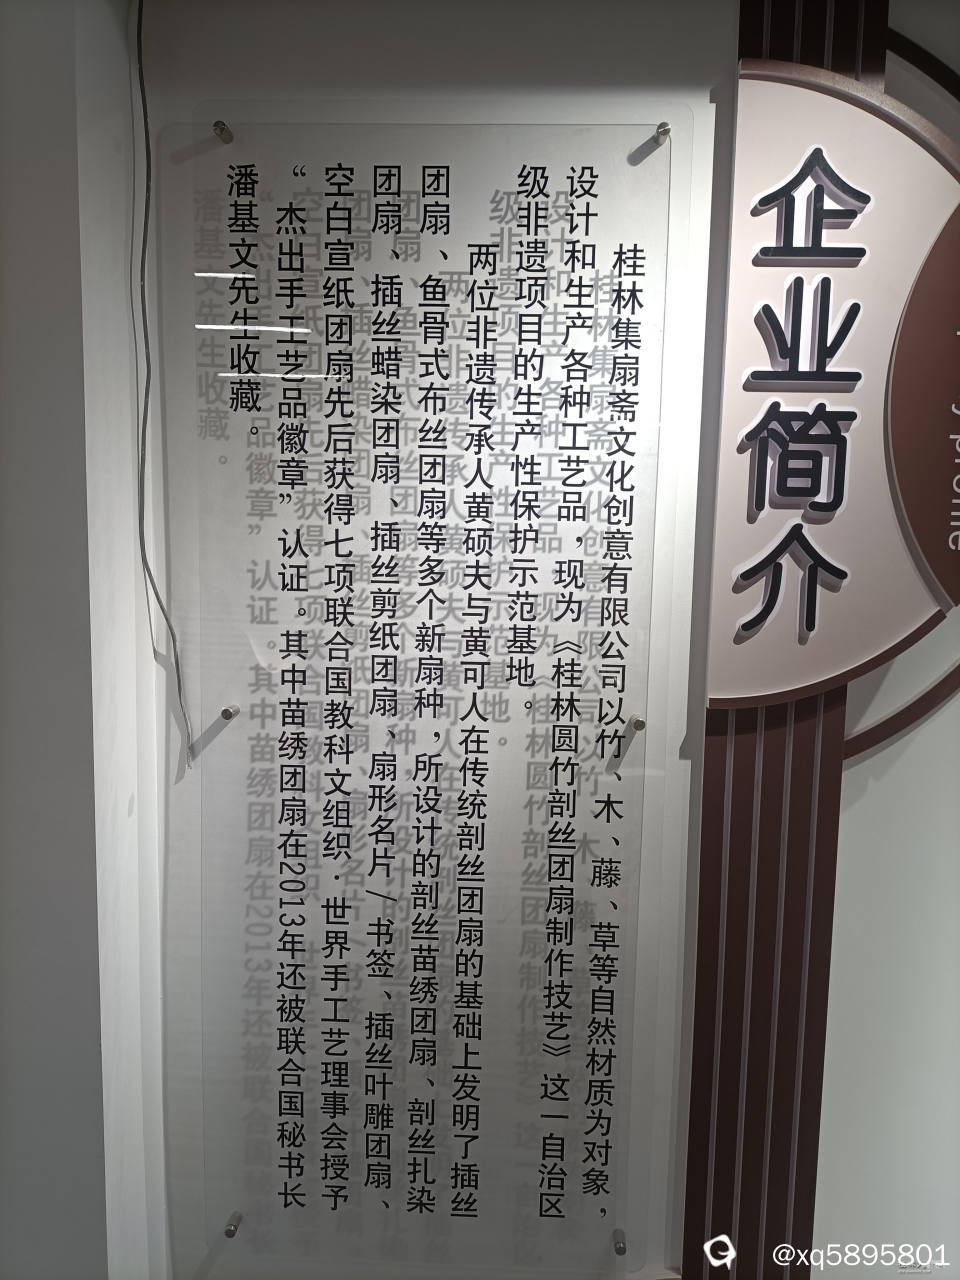 企业简介
y profile
桂林集扇斋文化创意有限公司以竹、木、藤、草等自然材质为对象，
设计和生产各种工艺品，现为《桂林圆竹剖丝团扇制作技艺》这一自治区
级非遗项目的生产性保护示范基地。
两位非遗传承人黄硕夫与黄可人在传统剖丝团扇的基础上发明了插丝
团扇、鱼骨式布丝团扇等多个新扇种，所设计的剖丝苗绣团扇、剖丝扎染
团扇、插丝蜡染团扇、插丝剪纸团扇、扇形名片/书签、插丝叶雕团扇、
空白宣纸团扇先后获得七项联合国教科文组织·世界手工艺理事会授予
“杰出手工艺品徽章”认证。其中苗绣团扇在2013年还被联合国秘书长
潘基文先生收藏。
@xq5895801